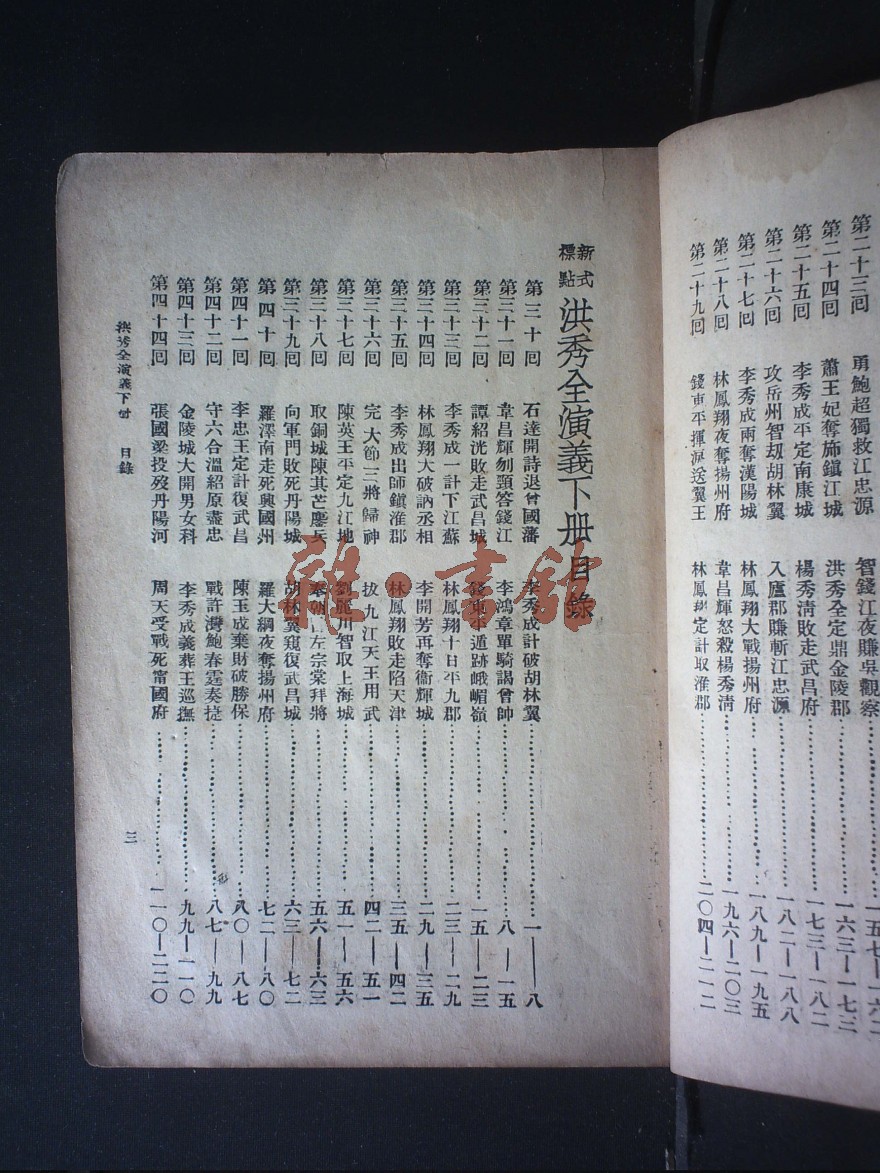 第二十三回　勇鮑超獨救江忠源　智錢江夜賺吳觀察………一五七—一六二
第二十四回　蕭王妃奪旆鎮江城　洪秀全定鼎金陵郡………一六三—一七三
第二十五回　李秀成平定南康城　楊秀清敗走武昌府………一七三—一八二
第二十六回　攻岳州智刼胡林翼　入廬郡賺斬江忠源………一八二—一八八
第二十七回　李秀成兩奪漢陽城　林鳳翔大戰揚州府………一八九—一九五
第二十八回　林鳳翔夜奪揚州府　韋昌輝怒殺楊秀清………一九六—二〇三
第二十九回　錢東平揮淚送翼王　林鳳翔定計取淮郡………二〇四—二一二
新式標點 洪秀全演義下册目錄
第三十回　石達開詩退曾國藩　李秀成計破胡林翼………一—八
第三十一回　韋昌輝刎頸答錢江　李鴻章單騎謁曾帥………八—一五
第三十二回　譚紹洸敗走武昌城　錢東平遁跡峨嵋嶺………一五—二三
第三十三回　李秀成一計下江蘇　林鳳翔十日平九郡………二三—二九
第三十四回　林鳳翔大破訥丞相　李開芳再奪衞輝城………二九—三五
第三十五回　李秀成出師鎮淮郡　林鳳翔敗走陷天津………三五—四二
第三十六回　完大節三將歸神　拔九江天王用武………四二—五一
第三十七回　陳英王平定九江地　劉麗川智取上海城………五一—五六
第三十八回　取銅城陳其芒鏖兵　奉朝　左宗棠拜將………五六—六三
第三十九回　向軍門敗死丹陽城　胡林翼窺復武昌城………六三—七二
第四十回　羅澤南走死興國州　羅大綱夜奪揚州府………七二—八〇
第四十一回　李忠王定計復武昌　陳玉成棄財破勝保………八〇—八七
第四十二回　守六合溫紹原盡忠　戰許灣鮑春霆奏捷………八七—九九
第四十三回　金陵城大開男女科　李秀成義葬王巡撫………九九—一一〇
第四十四回　張國梁投歿丹陽河　周天受戰死甯國府………一一〇—一二〇
洪秀全演義下册　目錄
三
雜·書館